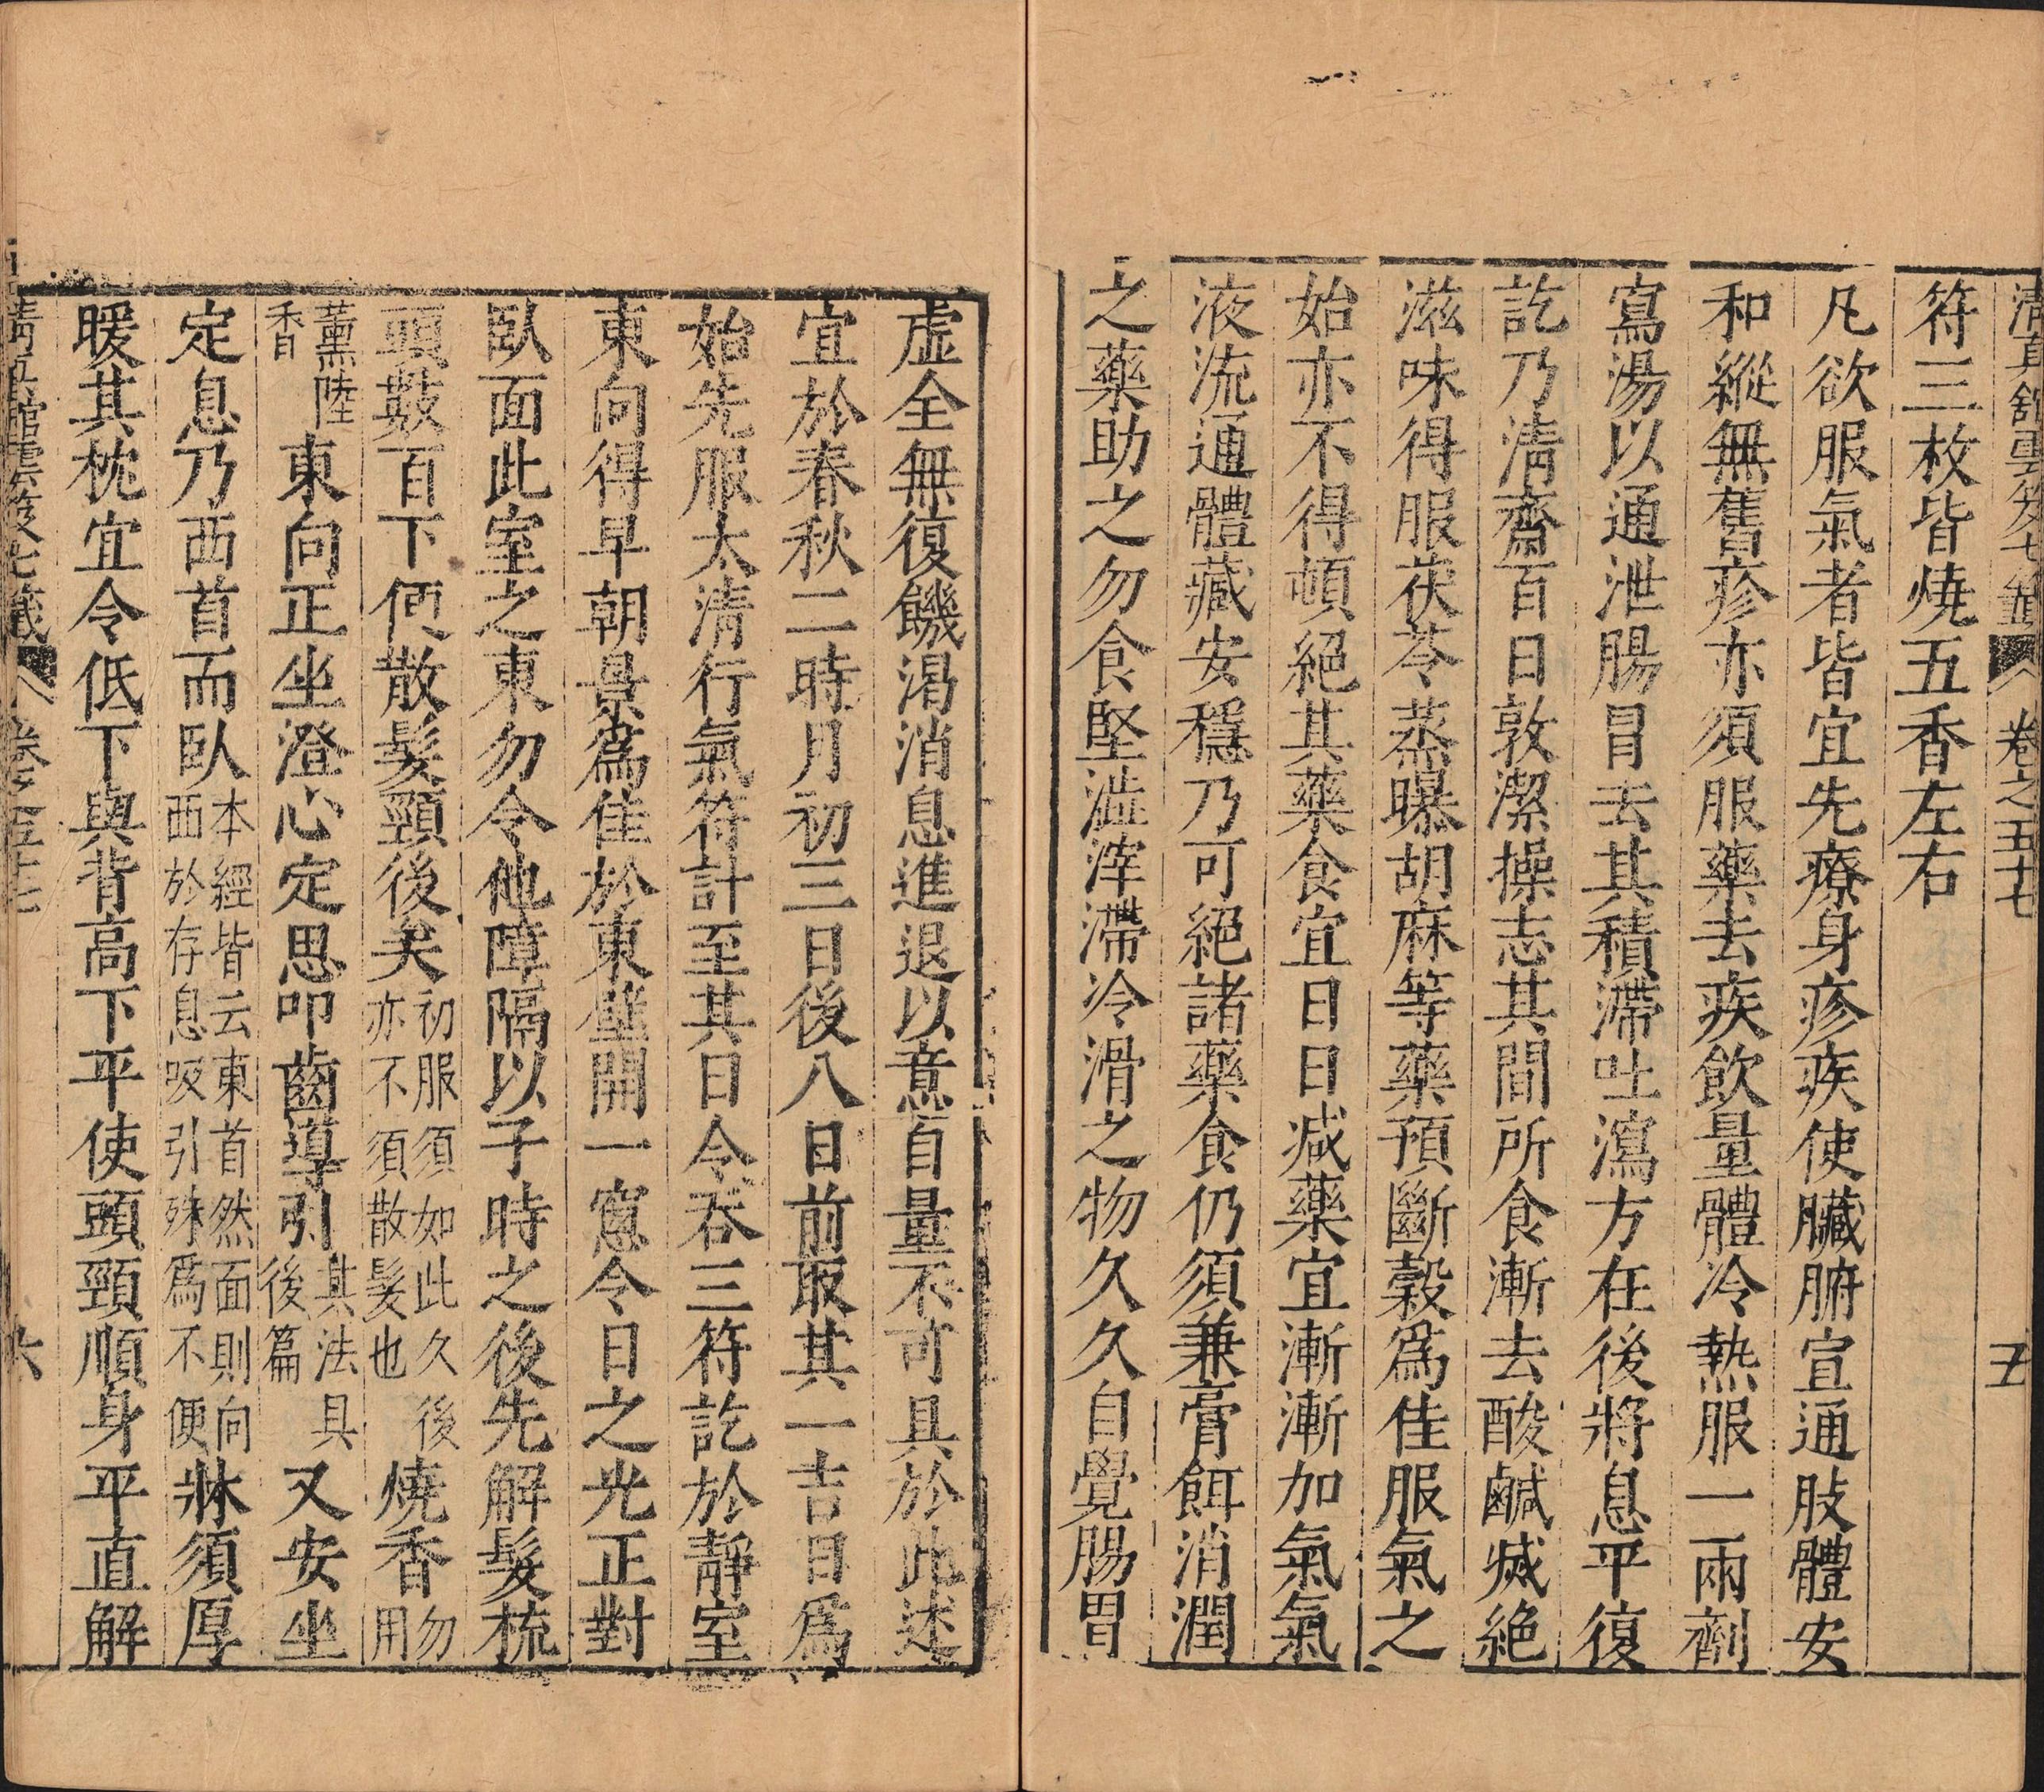 清真館雲笈七籤 卷之五十七 五
符三枚皆燒五香左右
凡欲服氣者皆宜先療身疹疾使臟腑宣通肢體安
和縱無舊疹亦須服藥去疾飲量體冷熱服一兩劑
寫湯以通泄腸胃去其積滯吐瀉方在後將息平復
訖乃清齋百日敦潔操志其間所食漸去酸鹹減絕
滋味得服茯苓蒸曝胡麻等藥預斷穀爲佳服氣之
始亦不得頓絕其藥食宜日日減藥宜漸漸加氣氣
液流通體藏安穩乃可絕諸藥食仍須兼膏餌消潤
之藥助之勿食堅澁滓滯冷滑之物久久自覺腸胃
虛全無復饑渴消息進退以意自量不可具於此述
宜於春秋二時月初三日後八日前取其一吉日爲
始先服太清行氣符計至其日令吞三符訖於靜室
東向得早朝景爲佳於東壁開一窻令日之光正對
臥面此室之東勿令他障隔以子時之後先解髮梳
頭數百下便散髮頸後矣初服須如此久後亦不須散髮也燒香勿用
薰陸香東向正坐澄心定思叩齒導引其法具後篇又安坐
定息乃西首而臥本經皆云東首然面則向西於存息吸引殊爲不便牀須厚
暖其枕宜令低下與背高下平使頭頸順身平直解
清真館雲笈七籤 卷之五十七 六